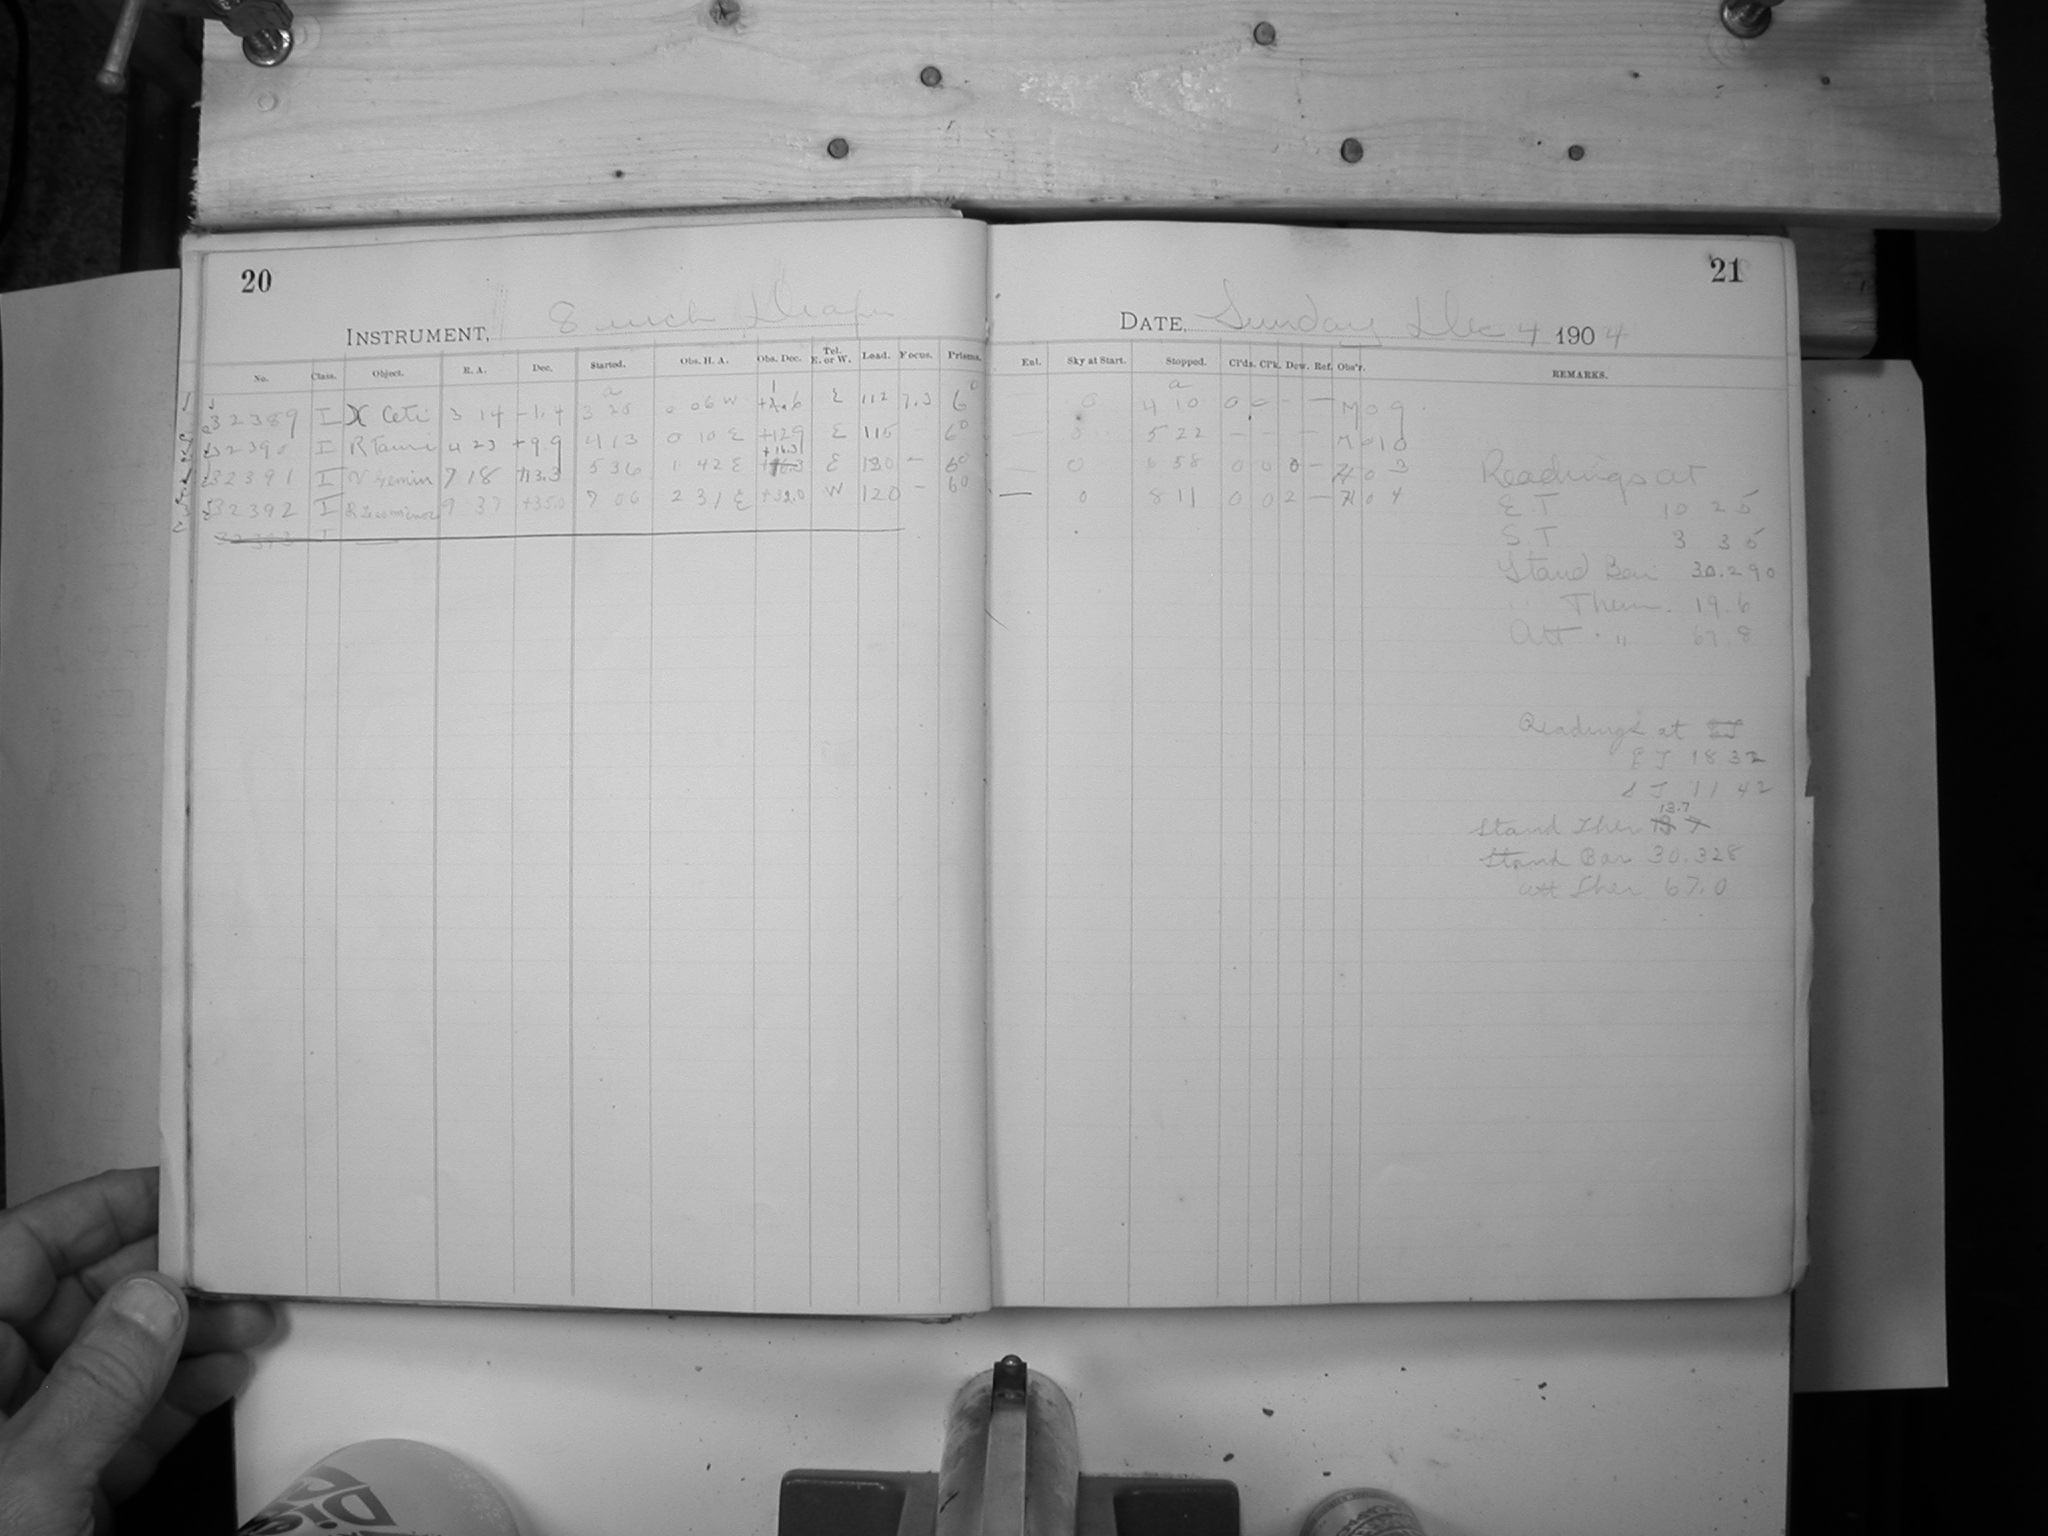 20
INSTRUMENT, 8 inch Draper
No. Class. Object. R. A. Dec. Started. Obs. H. A. Obs. Dec. Tel. E. or W. Load. Focus. Prisms.
32389 I X Ceti 3 14 -1.4 3 25 0 06 W E 112 7.3 6°
32390 I R Tauri 4 23 +9.9 4 13 0 10 E +12.9 E 115 — 6°
+16.3
32391 I V Gemin 7 18 +13.3 5 36 1 42 E +16.3 E 130 — 6°
32392 I R Leo minor 9 37 +35.0 7 06 2 31 E +32.0 W 120 — 6°
32393 I —
21
DATE, Sunday Dec 4 1904
Ent. Sky at Start. Stopped. Cl'ds. Cl'k. Dew. Ref. Obs'r. REMARKS.
— 0 4 10 0 0 — — M 0 9
— 0 5 22 — — — — M 0 10
— 0 6 58 0 0 0 — H 0 3
— 0 8 11 0 0 2 — H 0 4
Readings at
E. T. 10 25
S. T 3 35
Stand Bar 30.290
" Therm. 19.6
Att. " 67.8
Readings at
E T 18 32
S T 11 42
13.7
Stand Ther
Stand Bar 30.328
att Ther 67.0
Die